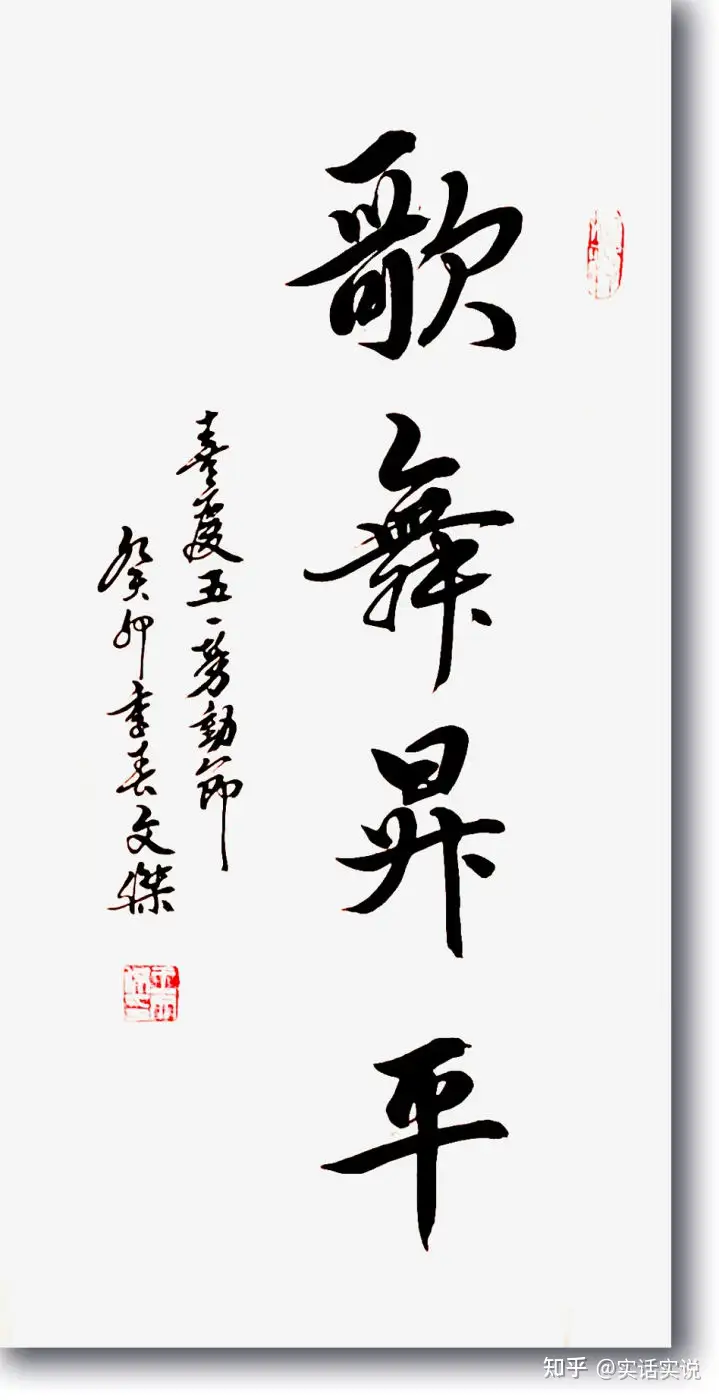 歌舞昇平
喜慶五一勞動節
癸卯季春文傑
知乎 @实话实说